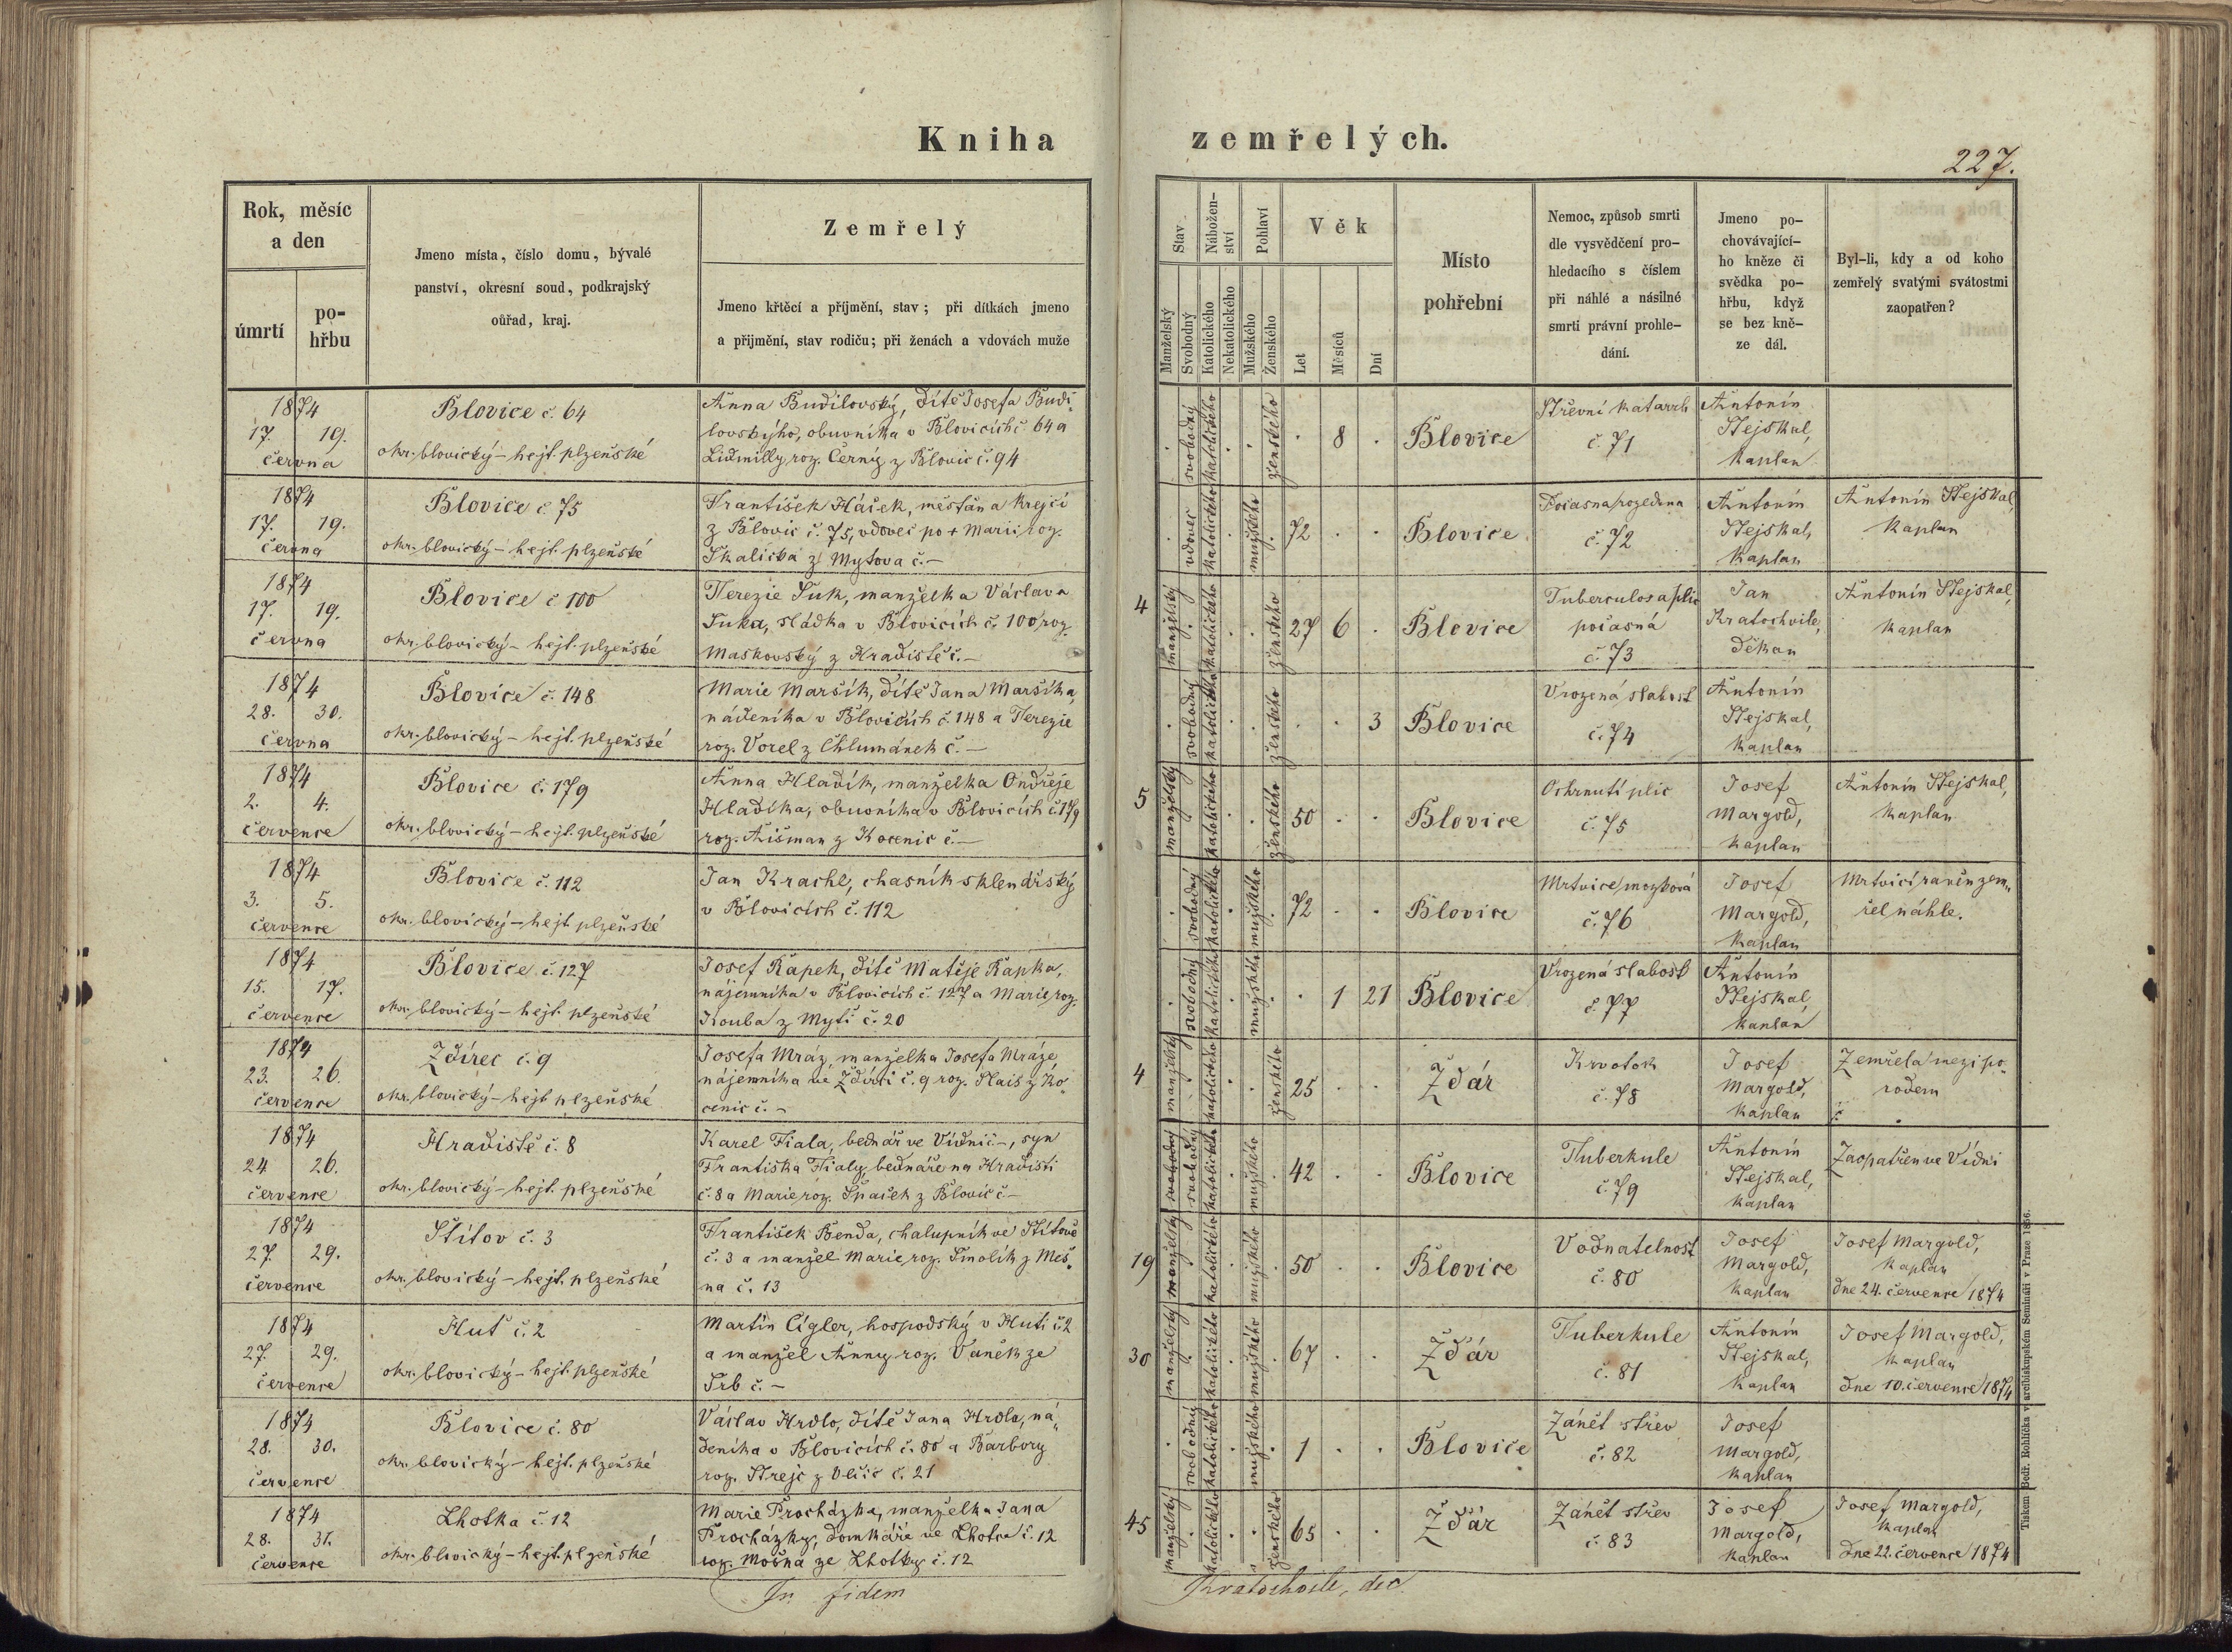 Kniha zemřelých.
227.
Rok, měsíc
a den
úmrtí
po-
hřbu
Jmeno místa, číslo domu, bývalé
panství, okresní soud, podkrajský
ouřad, kraj.
Zemřelý
Jmeno křtěcí a příjmění, stav; při dítkách jmeno
a přijmění, stav rodičů; při ženách a vdovách muže
Stav
Nábožen-
ství
Pohlaví
Věk
Manželský
Svobodný
Katolického
Nekatolického
Mužského
Ženského
Let
Měsíců
Dní
Místo
pohřební
Nemoc, způsob smrti
dle vysvědčení pro-
hledacího s číslem
při náhlé a násilné
smrti právní prohle-
dání.
Jmeno po-
chovávající-
ho kněze či
svědka po-
hřbu, když
se bez kně-
ze dál.
Byl-li, kdy a od koho
zemřelý svatými svátostmi
zaopatřen?
1874
17. 19.
června
Blovice č. 64
okr. blovický - hejt. plzeňské
Anna Budilovský, dítě Josefa Budi-
lovského, obuvníka v Blovicích č. 64 a
Lidmilly roz. Černý z Blovic č. 94
svobodný katolického ženského
8
Blovice
Střevní katarrh
č. 71
Antonín
Stejskal,
kaplan
1874
17. 19.
června
Blovice č 75
okr. blovický - hejt. plzeňské
František Háček, měšťan a krejčí
z Blovic č. 75, vdovec po + Marii roz.
Skalická z Mytova č. -
vdovec katolického mužského
72
Blovice
č. 72
Antonín
Stejskal,
kaplan
Antonín Stejskal,
kaplan
1874
17. 19.
června
Blovice č 100
okr. blovický - hejt. plzeňské
Terezie Suk, manželka Václava
Suka, sládka v Blovicích č. 100 roz.
Maskovský z Hradiště č. -
4
manželský katolického ženského
27 6
Blovice
Tuberculosa plic
počasná
č. 73
Jan
Kratochvile,
děkan
Antonín Stejskal,
kaplan
1874
28. 30.
června
Blovice č. 148
okr. blovický - hejt. plzeňské
Marie Maršík, dítě Jana Maršíka,
nádeníka v Blovicích č. 148 a Terezie
roz. Vorel z Chlumánek č. -
svobodný katolického ženského
3
Blovice
Vrozená slabost
č. 74
Antonín
Stejskal,
kaplan
1874
2. 4.
července
Blovice č. 179
okr. blovický - hejt. plzeňské
Anna Hladík, manželka Ondřeje
Hladíka, obuvníka v Blovicích č. 179
roz. Aišman z Kocenic č. -
5
manželský katolického ženského
50
Blovice
Ochrnutí plic
č. 75
Josef
Margold,
kaplan
Antonín Stejskal,
kaplan
1874
3. 5.
července
Blovice č. 112
okr. blovický - hejt. plzeňské
Jan Krachl, chasník sklenářský
v Blovicích č. 112
svobodný katolického mužského
72
Blovice
Mrtvice mozková
č. 76
Josef
Margold,
kaplan
Mrtvicí raněn zem-
řel náhle.
1874
15. 17.
července
Blovice č. 127
okr. blovický - hejt. plzeňské
Josef Kapek, dítě Matěje Kapka,
nájemníka v Blovicích č. 127 a Marie roz.
Kouba z Mytí č. 20
svobodný katolického mužského
1 21
Blovice
Vrozená slabost
č. 77
Antonín
Stejskal,
kaplan
1874
23. 26.
července
Ždírec č. 9
okr. blovický - hejt. plzeňské
Josefa Mráz, manželka Josefa Mráze,
nájemníka ve Ždírci č. 9 roz. Slais z Ko-
cenic č. -
4
manželský katolického ženského
25
Ždár
Krvotok
č. 78
Josef
Margold,
kaplan
Zemřela mezi po-
rodem
1874
24 26.
července
Hradiště č. 8
okr. blovický - hejt. plzeňské
Karel Fiala, bednář ve Vídni č -, syn
Františka Fialy, bednáře na Hradišti
č. 8 a Marie roz. Špaček z Blovic č -
svobodný svobodný katolického mužského
42
Blovice
Tuberkule
č. 79
Antonín
Stejskal,
kaplan
Zaopatřen ve Vídni
1874
27. 29.
července
Štítov č. 3
okr. blovický - hejt. plzeňské
František Benda, chalupník ve Štítově
č. 3 a manžel Marie roz. Smolík z Meš-
na č. 13
19
manželský katolického mužského
50
Blovice
Vodnatelnost
č. 80
Josef
Margold,
kaplan
Josef Margold,
kaplan
dne 24. července 1874
1874
27. 29.
července
Huť č. 2
okr. blovický - hejt. plzeňské
Martin Cígler, hospodský v Huti č. 2
a manžel Anny roz. Vaněk ze
Srb č. -
30
manželský katolického mužského
67
Ždár
Tuberkule
č. 81
Antonín
Stejskal,
kaplan
Josef Margold,
kaplan
dne 10. července 1874
1874
28. 30.
července
Blovice č. 80
okr. blovický - hejt. plzeňské
Václav Hrdlo, dítě Jana Hrdla, ná-
deníka v Blovicích č. 80 a Barbory
roz. Strejc z Vlčic č. 21
svobodný katolického mužského
1
Blovice
Zánět střev
č. 82
Josef
Margold,
kaplan
1874
28. 31.
července
Lhotka č. 12
okr. blovický - hejt. plzeňské
Marie Procházka, manželka Jana
Procházky, domkáře ve Lhotce č. 12
roz. Mošna ze Lhotky č. 12
45
manželský katolického ženského
65
Ždár
Zánět střev
č. 83
Josef
Margold,
kaplan
Josef Margold,
kaplan
dne 22. července 1874
In fidem
Kratochvile, děc.
Tiskem Bedř. Rohlíčka v arcibiskupském Semináři v Praze 1856.